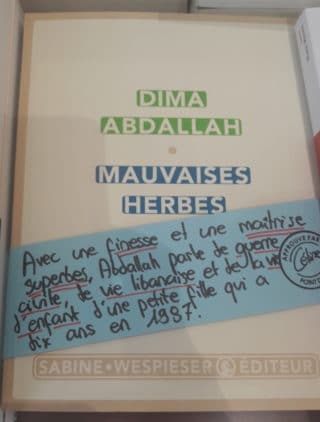 DIMA
ABDALLAH
MAUVAISES
HERBES
Avec une finesse et une maîtrise
superbes, Abdallah parle de guerre
civile, de vie libanaise et de la vie
d'enfant d'une petite fille qui a
dix ans en 1987.
APPROUVÉ PAR
SABINE • WESPIESER ÉDITEUR